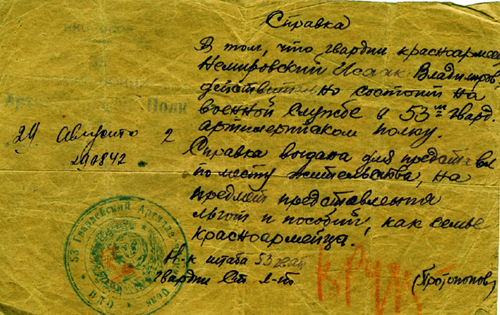 Справка
В том, что гвардии красноармеец
Немировский Исаак Владимиров
действительно состоит на
военной службе в 53м гвард.
артиллертском полку.
29 Августа 2
290842
Справка выдана для представл
по месту жительства, на
предмет представления
льгот и пособий, как семье
красноармейца.
Н-к штаба 53
гвардии Ст л-т (Протопопов)
53 Гвардейский Артиллер